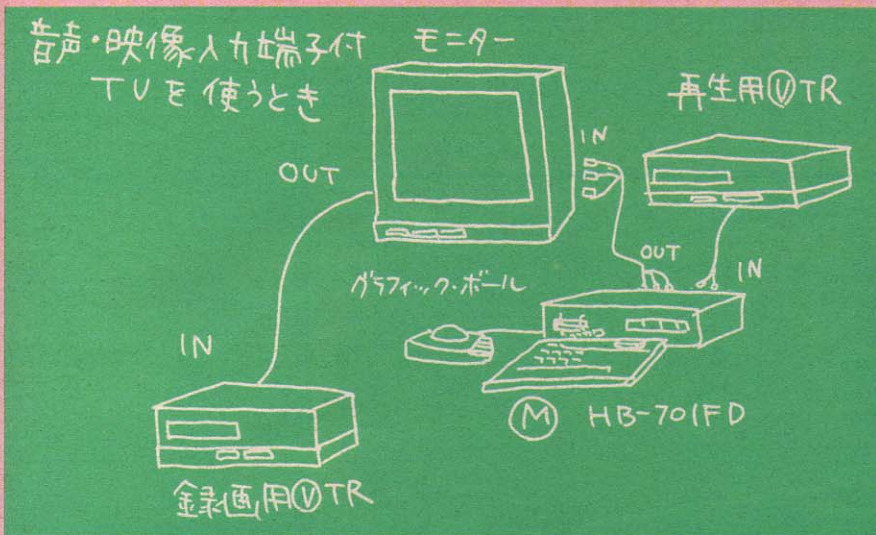 音声・映像入力端子付
TVを使うとき
モニター
再生用ⓋTR
IN
OUT
OUT
IN
グラフィック・ボール
IN
Ⓜ HB-701FD
録画用ⓋTR